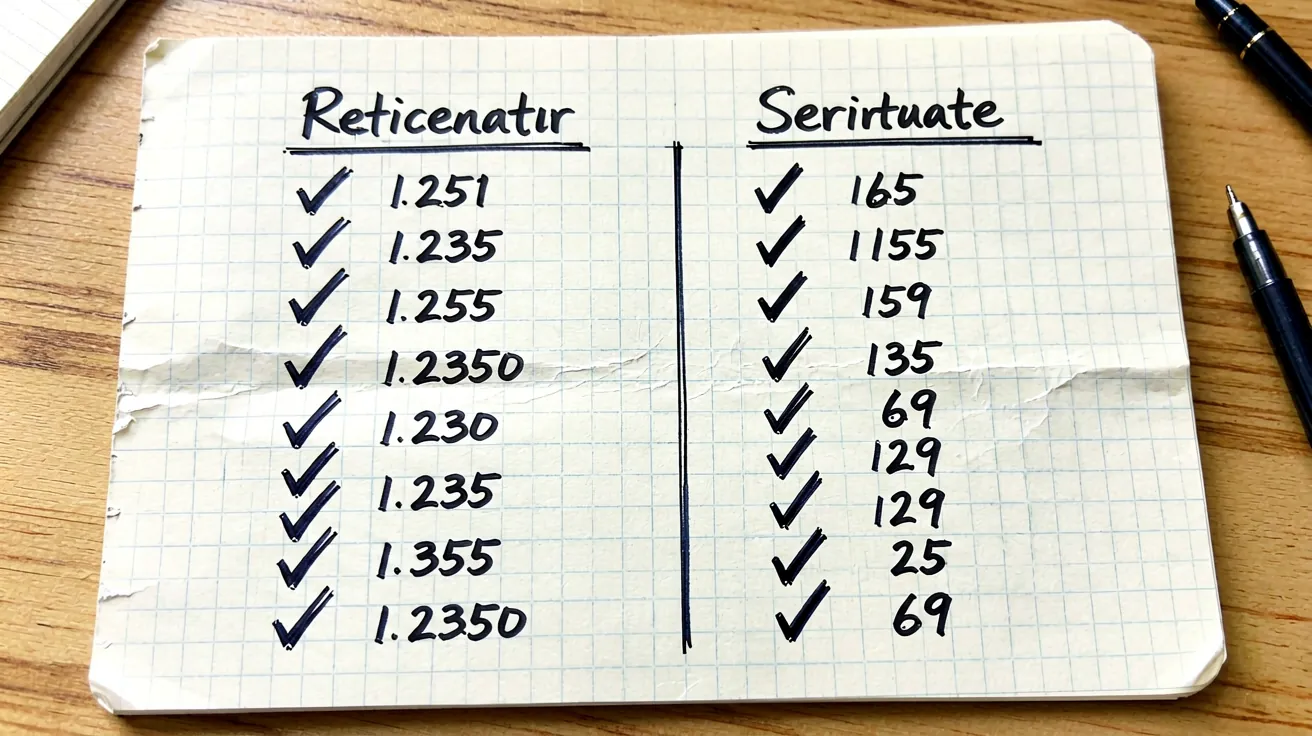 Reticenatır Serirtuate
✓ 1.251 ✓ 165
✓ 1.235 ✓ 1155
✓ 1.255 ✓ 159
✓ 1.2350 ✓ 135
✓ 1.230 ✓ 69
✓ ✓ 129
✓ 1.235 ✓ 129
✓ 1.355 ✓ 25
✓ 1.2350 ✓ 69